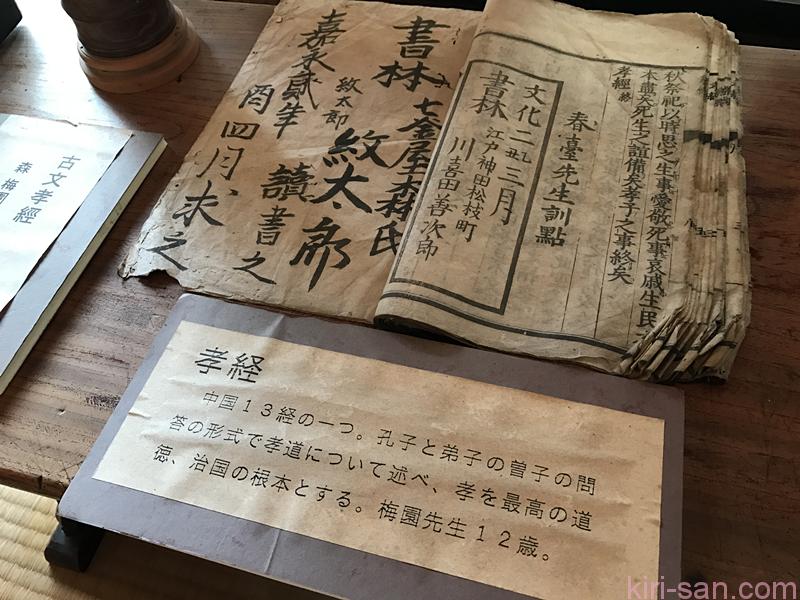 秋祭祀以時思之生事愛敬死事哀戚生民
本盡矣死生之誼備矣孝子之事終矣
孝經終
春臺先生訓點
文化二丑三月
江戸神田松枝町
書林 川喜田善次郎
七釜屋森氏
書林 紋太郎
紋太郎 讀書之
嘉永貳年
酉四月求之
古文孝經
森 梅園
孝経
中国13経の一つ。孔子と弟子の曽子の問
答の形式で孝道について述べ、孝を最高の道
徳、治国の根本とする。梅園先生12歳。
kiri-san.com